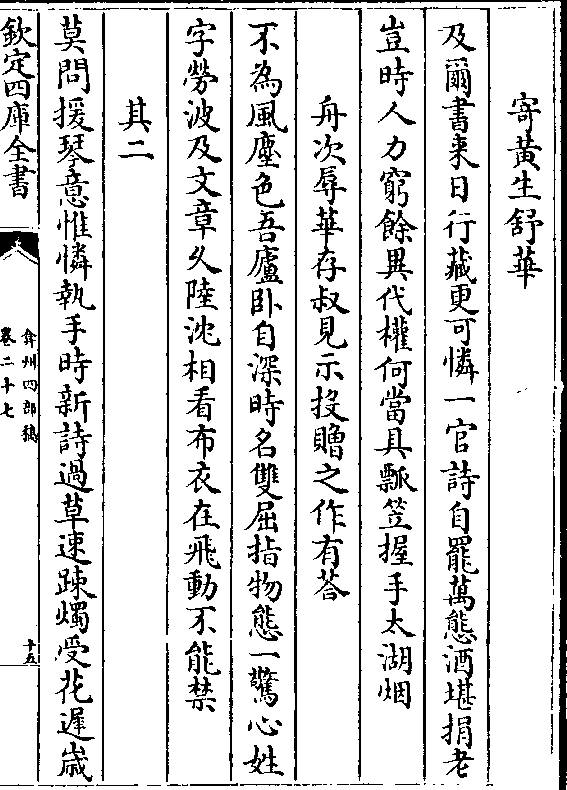 寄黃生舒華
及爾書来日行藏更可憐一官詩自罷萬態酒堪捐老
豈時人力窮餘異代權何當具瓢笠握手太湖烟
舟次辱華存叔見示投贈之作有答
不為風塵色吾廬卧自深時名雙屈指物態一驚心姓
字勞波及文章久陸沈相看布衣在飛動不能禁
其二
莫問援琴意惟憐執手時新詩過草速疎燭受花遲歳
欽定四庫全書
弇州四部稿
卷二十七
十五